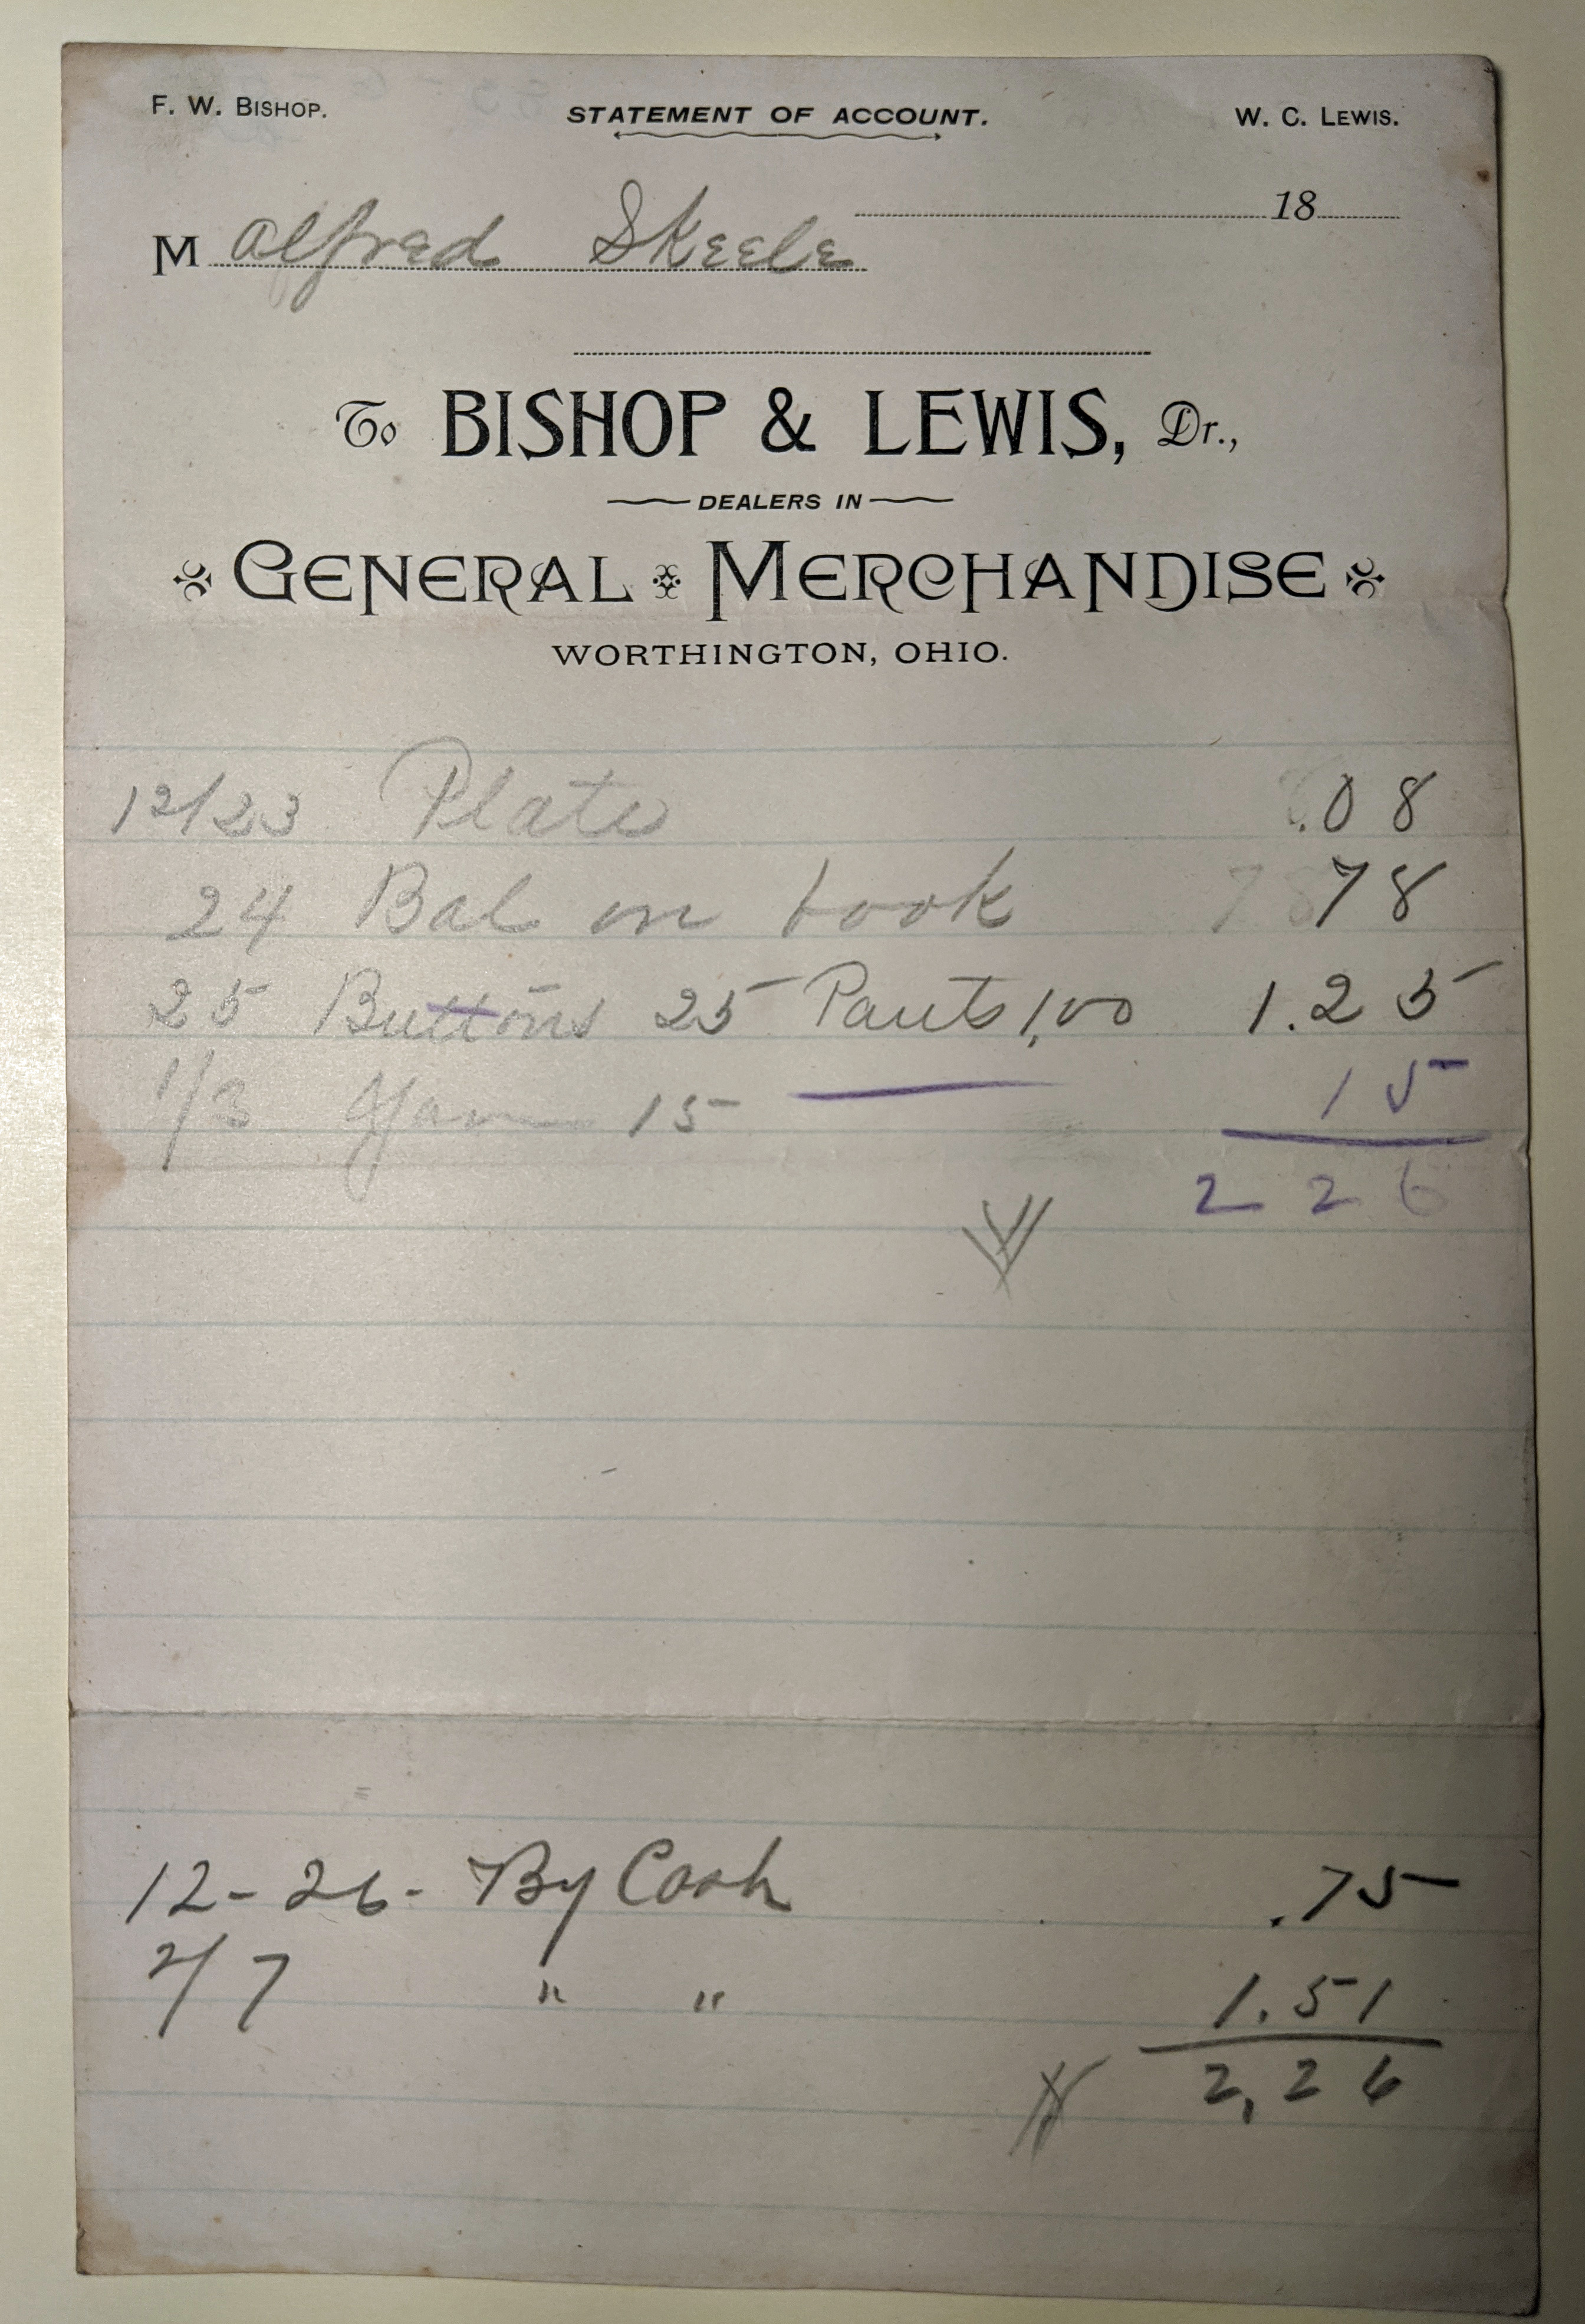 F. W. BISHOP. STATEMENT OF ACCOUNT. W. C. LEWIS.
18
M Alfred Skeele
To BISHOP & LEWIS, Dr.,
DEALERS IN
GENERAL MERCHANDISE
WORTHINGTON, OHIO.
12/23 Plate .08
24 Bal on book 78
25 Buttons 25 Pants 1,00 1.25
1/3 Yarn 15 15
2 26
12-26- By Cash .75
2/7 " " 1.51
2,26